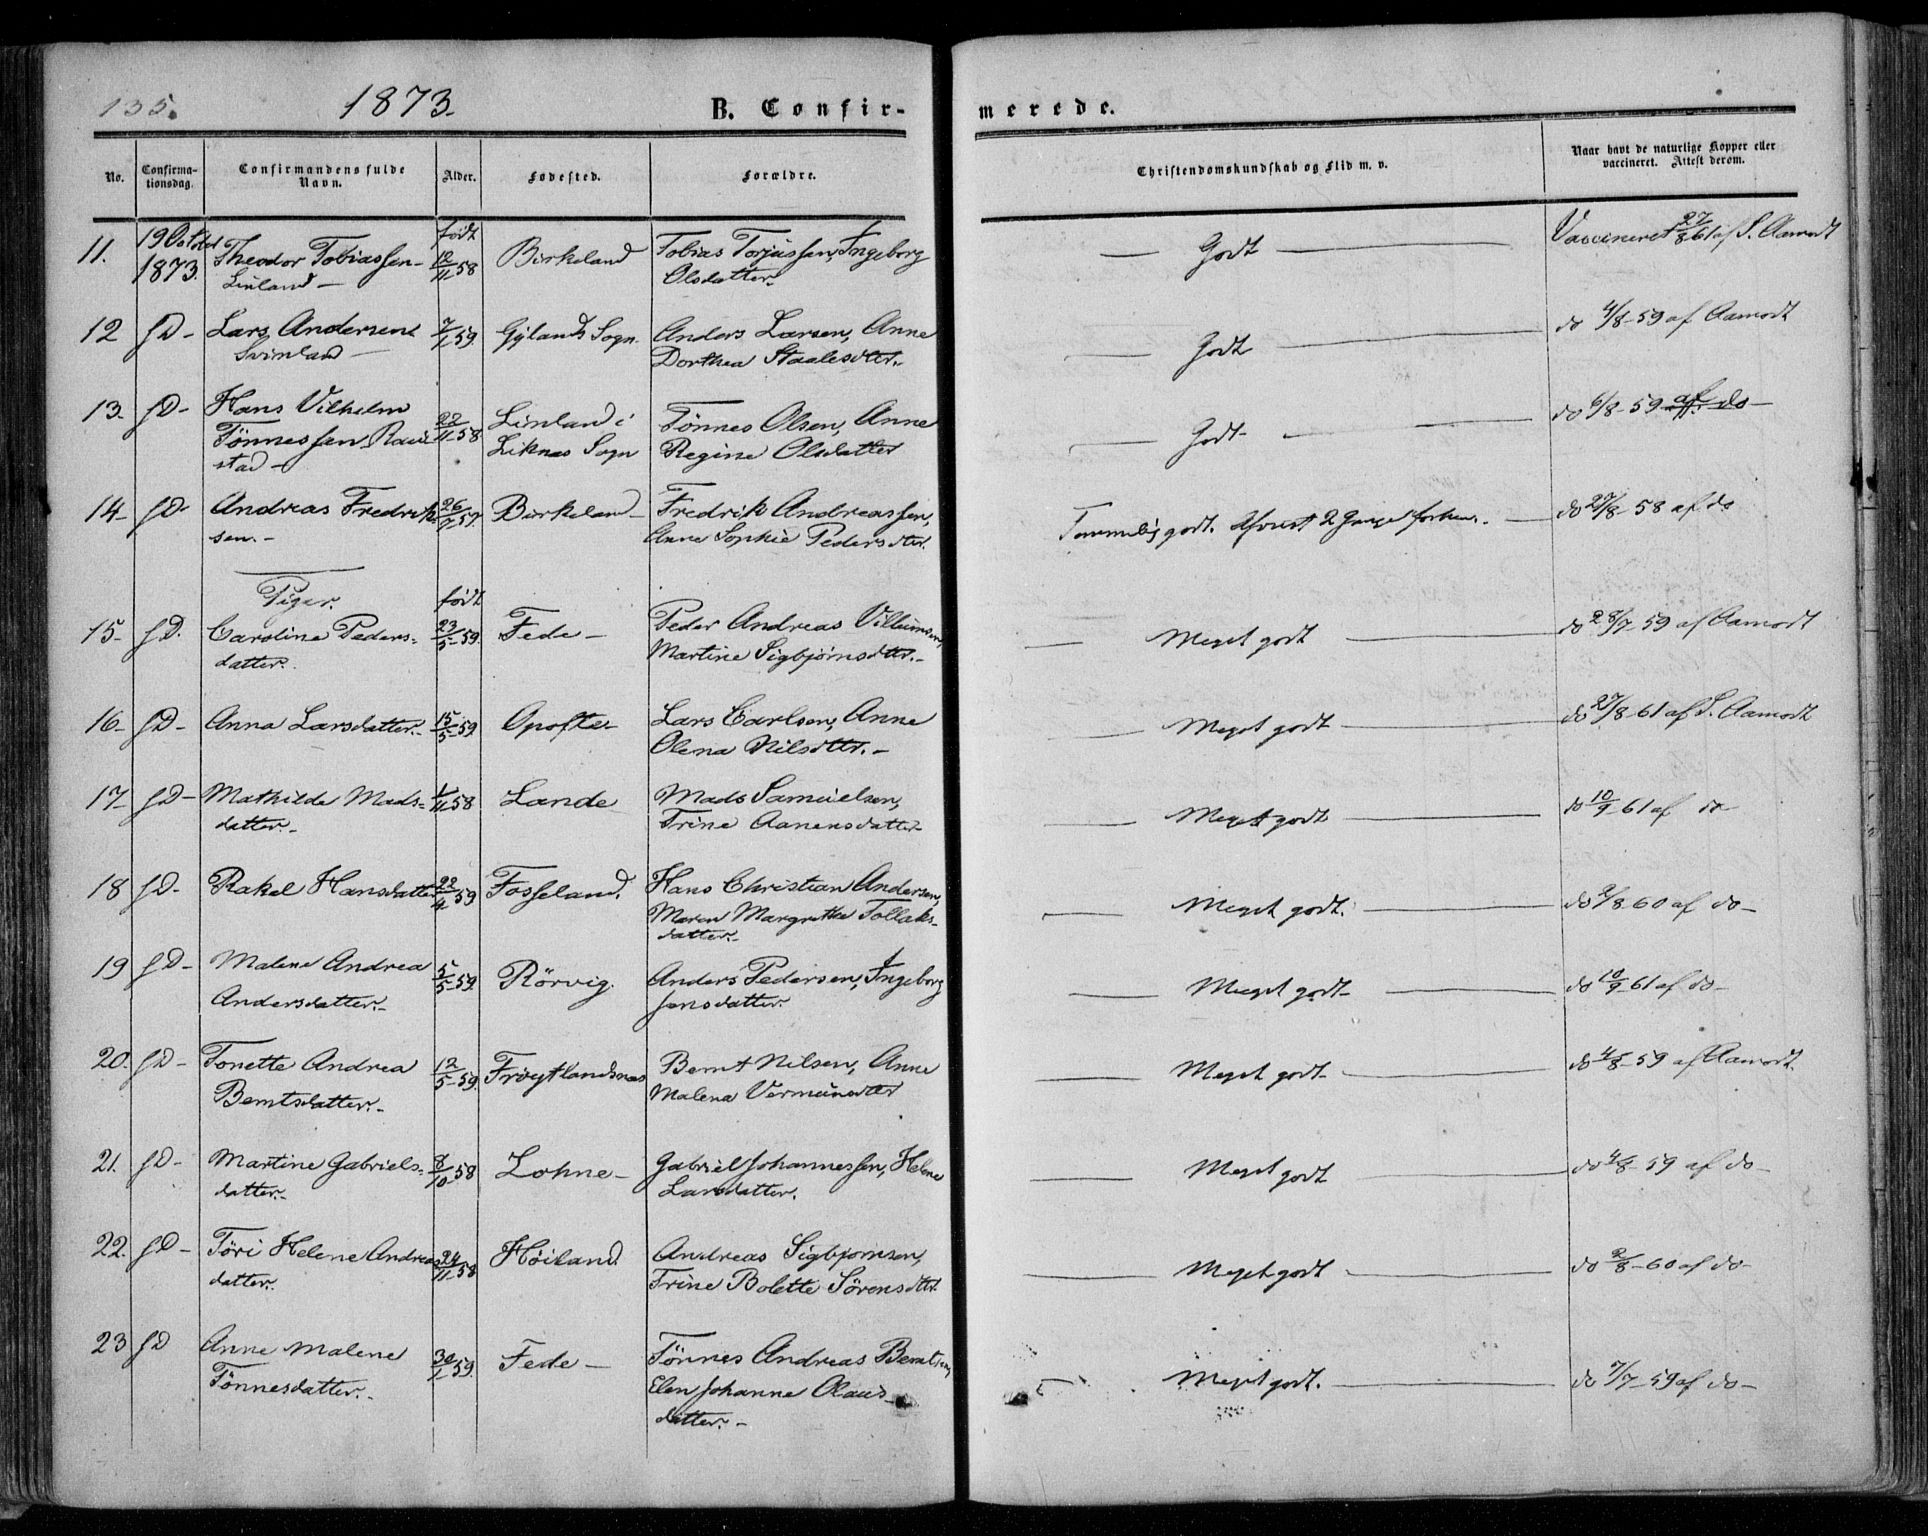 135.
1873.
B. Confirmerede.
No. | Confirmationsdag. | Confirmandens fulde Navn. | Alder. | Fødested. | Forældre. | Christendomskundskab og Flid m. v. | Naar havt de naturlige Kopper eller vaccineret. Attest derom.
11. | 19 Octbr 1873. | Theodor Tobiassen Linland | født 12/11 58 | Birkeland | Tobias Torjussen, Ingeborg Olsdatter. | Godt | Vaccineret 27/8 61 af S. Aamodt
12 | JD- | Lars Andersen Svinland | 7/1 59. | Gylands Sogn. | Anders Larsen, Anne Dorthea Staalesdtr. | Godt | do 4/8-59 af Aamodt
13. | JD- | Hans Vilhelm Tönnessen Raustad | 22/11 58 | Linland i Liknes Sogn | Tönnes Olsen, Anne Regine Olsdatter | Godt | do 6/8-59 af do
14 | JD- | Andreas Fredriksen. | 26/7 57. | Birkeland | Fredrik Andreassen, Anne Sophie Pedersdtr. | Temmelig godt. 2 Gange | do 27/8-58 af do
Piger.
15- | JD. | Caroline Pedersdatter. | født 23/5-59. | Fede | Peder Andreas Villumsen, Martine Sigbjørnsdtr. | Meget godt | do 28/7-59 af Aamodt
16- | JD- | Anna Larsdatter. | 15/5-59. | Opofte | Lars Carlsen, Anne Olena Nilsdtr. | Meget godt | do 27/8-61 af S. Aamodt
17- | JD- | Mathilde Madsdatter. | 1/11 58 | Lande | Mads Samuelsen, Trine Aanensdatter | Meget godt | do 10/9-61 af do
18 | JD- | Rakel Hansdatter | 22/4 59 | Fosseland. | Hans Christian Andersen, Maren Margrethe Tollaksdatter. | Meget godt. | do 2/8-60 af do
19 | JD- | Malene Andrea Andersdatter. | 5/5-59. | Rörvig. | Anders Pedersen, Ingeborg Jensdatter. | Meget godt | do 10/9-61 af do
20. | JD- | Tonette Andrea Berntsdatter. | 12/5-59. | Frøytlandsnes | Bernt Nilsen, Anne Malena Vermundsdtr | Meget godt | do 4/8-59 af Aamodt.
21. | JD- | Martine Gabrielsdatter. | 8/10 58 | Lohne | Gabriel Johannessen, Helene Larsdatter. | Meget godt | do 4/8-59 af do
22. | JD- | Töri Helene Andreasdatter. | 24/11 58 | Höiland | Andreas Sigbjørnsen, Trine Bolette Sörensdtr. | Meget godt | do 2/8-60 af do
23 | JD | Anne Malene Tönnesdatter. | 30/1 59. | Fede | Tönnes Andreas Berntsen, Elen Johanne Olausdatter. | Meget godt. | do 7/7-59 af do